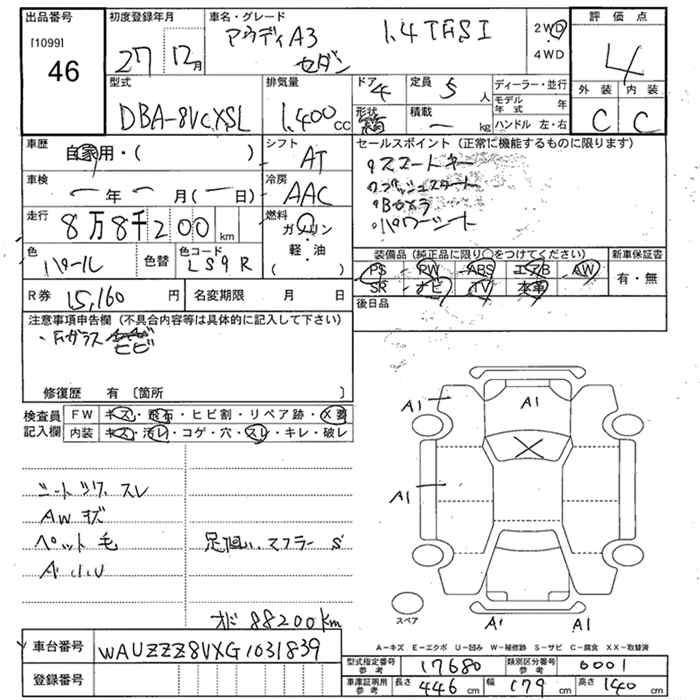 出品番号 初度登録年月 車名・グレード 評価点
[1099] アウディA3 1.4TFSI 2WD
46 27 12月 セダン 4WD 4
型式 排気量 ドア 定員 ディーラー・並行 外装 内装
4 5人 モデル年式 年
DBA-8VCXSL 1,400cc 形状 積載 ー kg ハンドル 左・右 C C
車歴 自家用・( ) シフト AT セールスポイント(正常に機能するものに限ります)
・スマートキー
車検 ー年 ー月(ー日) 冷房 AAC ・プッシュスタート
・Bカメラ
走行 8万8千200km 燃料 ガソリン ・パワーシート
軽・油
色 パール 色替 色コード LS9R ( )
装備品(純正品に限り○をつけてください) 新車保証書
PS PW ABS エアB AW 有・無
SR ナビ TV 本革
R券 15,160円 名変期限 月 日
後日品
注意事項申告欄(不具合内容等は具体的に記入して下さい)
・Fガラス ヒビ
修復歴 有〔箇所 〕
検査員 FW キズ・飛石・ヒビ割・リペア跡・X要
記入欄 内装 キズ・汚レ・コゲ・穴・スレ・キレ・破レ
A1 A1
A1
シートシワ、スレ
AWキズ
ペット毛 足回い、マフラーS
A小U
スペア
オド 88200km
A1 A1
A-キズ E-エクボ U-凹み W-補修跡 S-サビ C-腐食 XX-取替済
車台番号 WAUZZZ8VXG1031839
登録番号
型式指定番号参考 17680 類別区分番号参考 0001
車庫証明用参考 長さ 446cm 幅 179cm 高さ 140cm